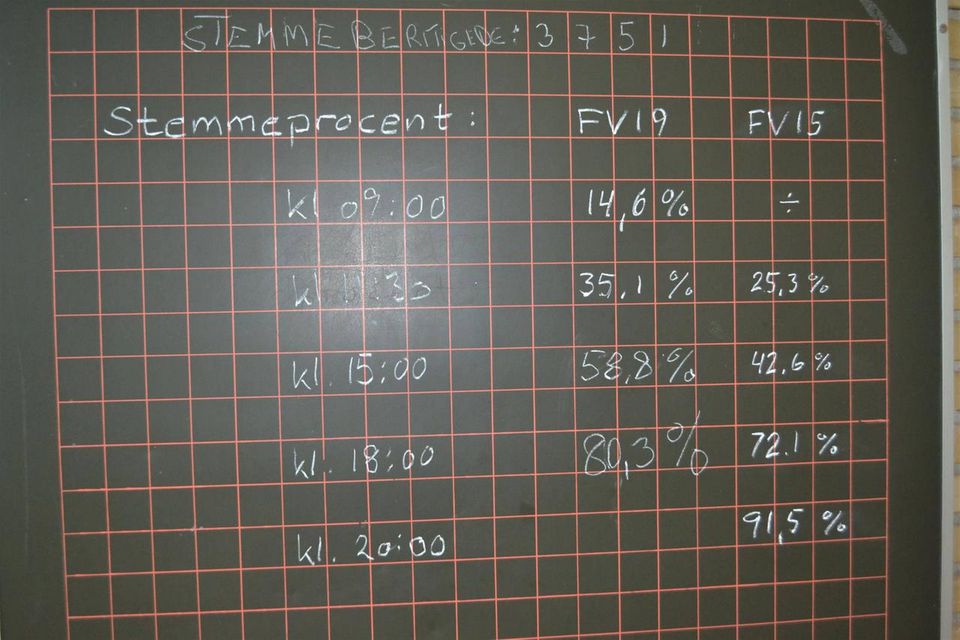 STEMMEBERTIGEDE: 3751
Stemmeprocent: FV19 FV15
kl 09:00 14,6% ÷
kl 11:30 35.1 % 25,3%
kl. 15:00 58,8% 42,6%
kl. 18:00 80,3% 72.1 %
kl. 20:00 91,5 %